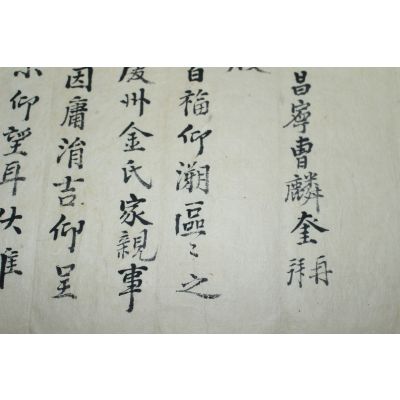 昌寧曹麟奎再拜
百福仰溯區〻之
慶州金氏家親事
因庸涓吉仰呈
示仰望耳伏惟